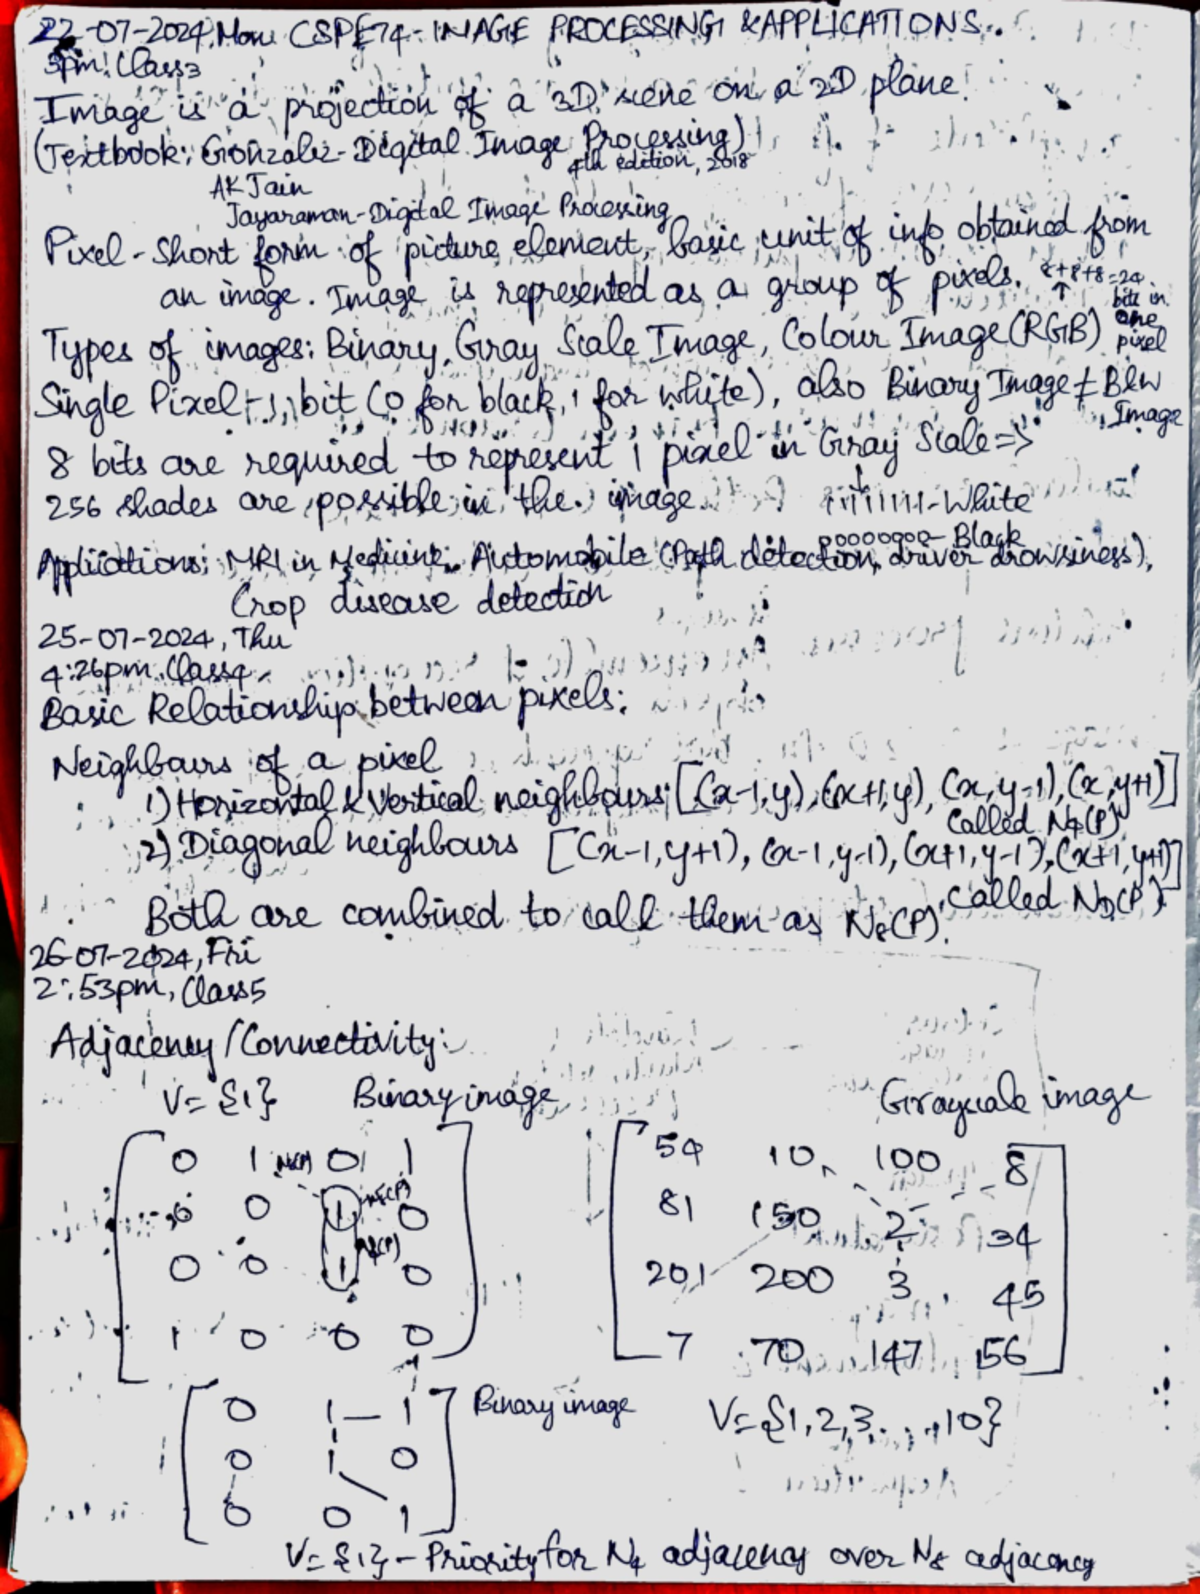 22-07-2024, Mon CSPE74-IMAGE PROCESSING & APPLICATIONS.
3pm, Class3
Image is a projection of a 3D scene on a 2D plane.
(Textbook: Gonzalez-Digital Image Processing)
4th edition, 2018
AK Jain
Jayaraman-Digital Image Processing
Pixel - Short form of picture element, basic unit of info obtained from
an image. Image is represented as a group of pixels.
8+8+8=24
bits in
one
pixel
Types of images: Binary, Gray Scale Image, Colour Image (RGB)
Single Pixel - 1 bit (0 for black, 1 for white), also Binary Image ≠ B&W
Image
8 bits are required to represent 1 pixel in Gray Scale =>
256 shades are possible in the image. 11111111-White
00000000-Black
Applications: MRI in Medicine, Automobile (Path detection, driver drowsiness),
Crop disease detection
25-07-2024, Thu
4:26pm, Class4
Basic Relationship between pixels:
Neighbours of a pixel
1) Horizontal & Vertical neighbours: [(x-1,y), (x+1,y), (x,y-1), (x,y+1)]
Called N4(P)
2) Diagonal neighbours [(x-1,y+1), (x-1,y-1), (x+1,y-1), (x+1,y+1)]
Called ND(P)
Both are combined to call them as N8(P).
26-07-2024, Fri
2:53pm, Class5
Adjacency/Connectivity:
V={1} Binary image Grayscale image
0 1 N8(P) 0 1
0 0 1 N8(P) 0
N4(P)
0 0 1 0
1 0 0 0
54 10 100 8
81 150 2 34
201 200 3 45
7 70 147 56
0 1 1 Binary image V={1,2,3...,10}
0 1 0
0 0 1
V={1} - Priority for N4 adjacency over N8 adjacency